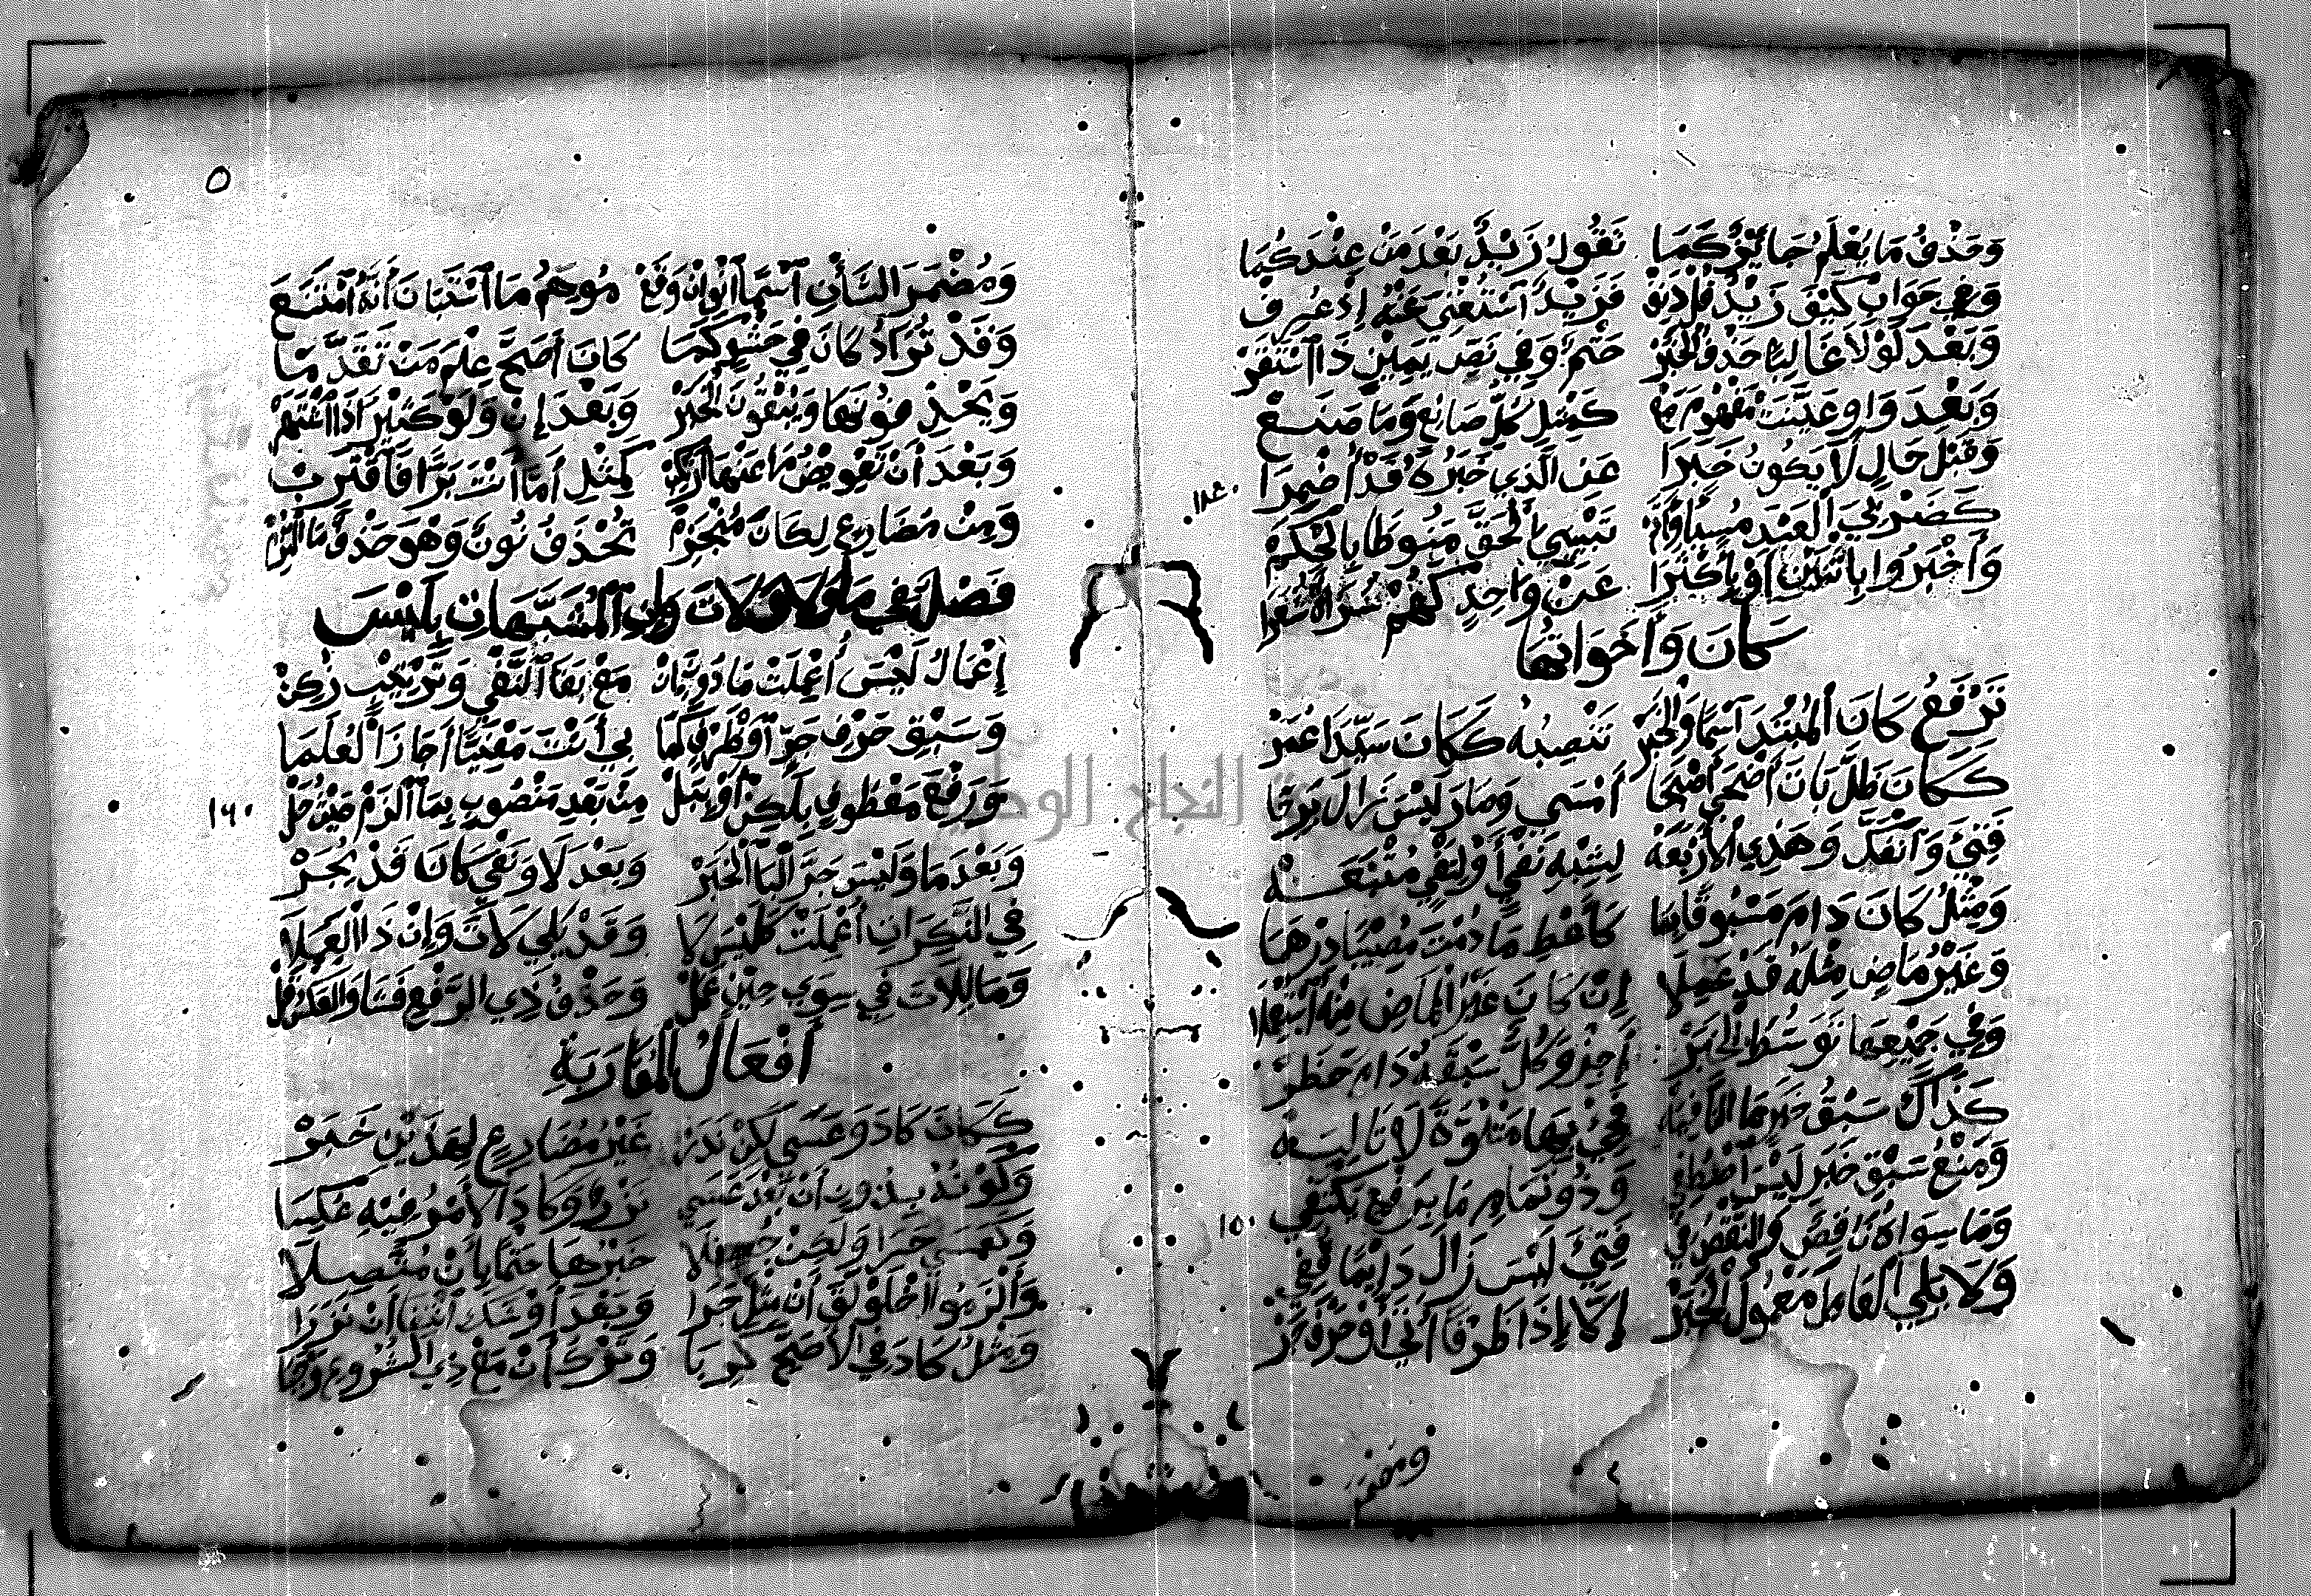 وَحَذْفُ مَا يُعْلَمُ جَائِزٌ كَمَا تَقُولُ زَيْدٌ بَعْدَ مَنْ عِنْدَكُمَا
وَفِي جَوَابِ كَيْفَ زَيْدٌ قُلْ دَنِفْ فَزَيْدٌ اسْتُغْنِيَ عَنْهُ إِذْ عُرِفْ
وَبَعْدَ لَوْلَا غَالِبًا حَذْفُ الْخَبَرْ حَتْمٌ وَفِي نَصِّ يَمِينٍ ذَا اسْتَقَرْ
وَبَعْدَ وَاوٍ عَيَّنَتْ مَفْهُومَ مَعْ كَمِثْلِ كُلُّ صَانِعٍ وَمَا صَنَعْ
وَقَبْلَ حَالٍ لَا يَكُونُ خَبَرَا عَنِ الَّذِي خَبَرُهُ قَدْ أُضْمِرَا
كَضَرْبِيَ الْعَبْدَ مُسِيئًا وَأَتَمْ تَبْيِينِيَ الْحَقَّ مَنُوطًا بِالْحِكَمْ
١٤٠
وَأَخْبَرُوا بِاثْنَيْنِ أَوْ بِأَكْثَرَا عَنْ وَاحِدٍ كَهُمْ سَرَاةٌ شُعَرَا
كَانَ وَأَخَوَاتُهَا
تَرْفَعُ كَانَ الْمُبْتَدَا اسْمًا وَالْخَبَرْ تَنْصِبُهُ كَكَانَ سَيِّدًا عُمَرْ
كَكَانَ ظَلَّ بَاتَ أَضْحَى أَصْبَحَا أَمْسَى وَصَارَ لَيْسَ زَالَ بَرِحَا
فَتِئَ وَانْفَكَّ وَهَذِي الْأَرْبَعَهْ لِشِبْهِ نَفْيٍ أَوْ لِنَفْيٍ مُتْبَعَهْ
وَمِثْلُ كَانَ دَامَ مَسْبُوقًا بِمَا كَأَعْطِ مَا دُمْتَ مُصِيبًا دِرْهَمَا
وَغَيْرُ مَاضٍ مِثْلَهُ قَدْ عَمِلَا إِنْ كَانَ غَيْرُ الْمَاضِ مِنْهُ اسْتُعْمِلَا
وَفِي جَمِيعِهَا تَوَسُّطَ الْخَبَرْ أَجِزْ وَكُلٌّ سَبْقَهُ دَامَ حَظَرْ
كَذَاكَ سَبْقُ خَبَرٍ مَا النَّافِيَهْ فَجِئْ بِهَا مَتْلُوَّةً لَا تَالِيَهْ
وَمَنْعُ سَبْقِ خَبَرٍ لَيْسَ اصْطُفِي وَذُو تَمَامٍ مَا بِرَفْعٍ يَكْتَفِي
١٥٠
وَمَا سِوَاهُ نَاقِصٌ وَالنَّقْصُ فِي فَتِئَ لَيْسَ زَالَ دَائِمًا قُفِي
وَلَا يَلِي الْعَامِلَ مَعْمُولُ الْخَبَرْ إِلَّا إِذَا ظَرْفًا أَتَى أَوْ حَرْفَ جَرْ
ومضمر
٥
وَمُضْمَرَ الشَّأْنِ اسْمًا انْوِ إِنْ وَقَعْ مُوهِمُ مَا اسْتَبَانَ أَنَّهُ امْتَنَعْ
وَقَدْ تُزَادُ كَانَ فِي حَشْوٍ كَمَا كَانَ أَصَحَّ عِلْمَ مَنْ تَقَدَّمَا
وَيَحْذِفُونَهَا وَيُبْقُونَ الْخَبَرْ وَبَعْدَ إِنْ وَلَوْ كَثِيرًا ذَا اشْتَهَرْ
وَبَعْدَ أَنْ تَعْوِيضُ مَا عَنْهَا ارْتُكِبْ كَمِثْلِ أَمَّا أَنْتَ بَرًّا فَاقْتَرِبْ
وَمِنْ مُضَارِعٍ لِكَانَ مُنْجَزِمْ تُحْذَفُ نُونٌ وَهْوَ حَذْفٌ مَا الْتُزِمْ
فَصْلٌ فِي مَا وَلَا وَلَاتَ وَإِنِ الْمُشَبَّهَاتِ بِلَيْسَ
إِعْمَالَ لَيْسَ أُعْمِلَتْ مَا دُونَ إِنْ مَعَ بَقَا النَّفْيِ وَتَرْتِيبٍ زُكِنْ
وَسَبْقَ حَرْفِ جَرٍّ أَوْ ظَرْفٍ كَمَا بِي أَنْتَ مَعْنِيًّا أَجَازَ الْعُلَمَا
١٦٠
وَرَفْعَ مَعْطُوفٍ بِلَكِنْ أَوْ بِبَلْ مِنْ بَعْدِ مَنْصُوبٍ بِمَا الْزَمْ حَيْثُ حَلْ
وَبَعْدَ مَا وَلَيْسَ جَرَّ الْبَا الْخَبَرْ وَبَعْدَ لَا وَنَفْيِ كَانَ قَدْ يُجَرْ
فِي النَّكِرَاتِ أُعْمِلَتْ كَلَيْسَ لَا وَقَدْ يَلِي لَاتَ وَإِنْ ذَا الْعَمَلَا
وَمَا لِلَاتَ فِي سِوَى حِينٍ عَمَلْ وَحَذْفُ ذِي الرَّفْعِ فَشَا وَالْعَكْسُ قَلْ
أَفْعَالُ الْمُقَارَبَةِ
كَكَانَ كَادَ وَعَسَى لَكِنْ نَدَرْ غَيْرُ مُضَارِعٍ لِهَذَيْنِ خَبَرْ
وَكَوْنُهُ بِدُونِ أَنْ بَعْدَ عَسَى نَزْرٌ وَكَادَ الْأَمْرُ فِيهِ عُكِسَا
وَكَعَسَى حَرَى وَلَكِنْ جُعِلَا خَبَرُهَا حَتْمًا بِأَنْ مُتَّصِلَا
وَأَلْزَمُوا اخْلَوْلَقَ أَنْ مِثْلَ حَرَى وَبَعْدَ أَوْشَكَ انْتِفَا أَنْ نَزُرَا
وَمِثْلُ كَادَ فِي الْأَصَحِّ كَرَبَا وَتَرْكُ أَنْ مَعْ ذِي الشُّرُوعِ وَجَبَا